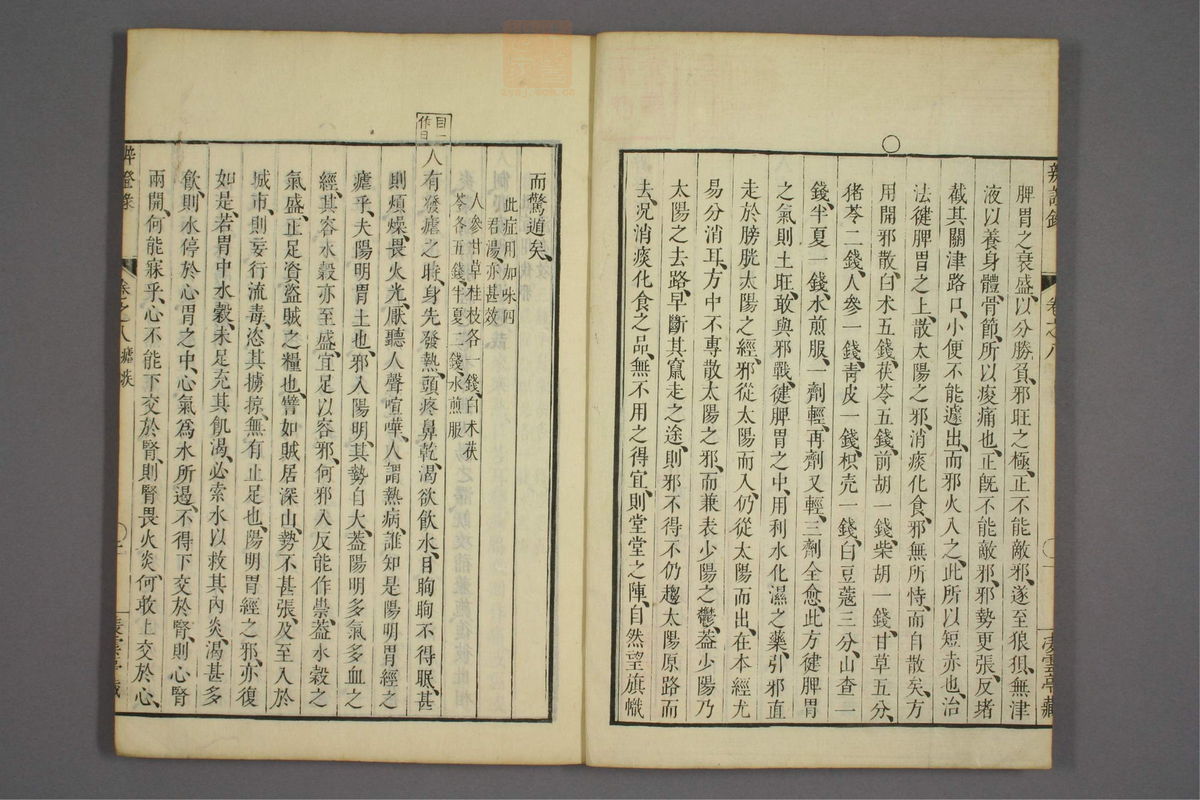 辨證錄 卷之八 凌雲亭藏
脾胃之衰盛以分勝負邪旺之極正不能敵邪遂至狼狽無津
液以養身體骨節所以痠痛也正旣不能敵邪邪勢更張反堵
截其關津路口小便不能遽出而邪火入之此所以短赤也治
法健脾胃之土散太陽之邪消痰化食邪無所恃而自散矣方
用開邪散白术五錢茯苓五錢前胡一錢柴胡一錢甘草五分
猪苓二錢人參一錢靑皮一錢枳壳一錢白豆蔻三分山查一
錢半夏一錢水煎服一劑輕再劑又輕三劑全愈此方健脾胃
之氣則土旺敢與邪戰健脾胃之中用利水化濕之藥引邪直
走於膀胱太陽之經邪從太陽而入仍從太陽而出在本經尤
易分消耳方中不專散太陽之邪而兼表少陽之鬱葢少陽乃
太陽之去路早斷其竄走之途則邪不得不仍趨太陽原路而
去况消痰化食之品無不用之得宜則堂堂之陣自然望旗幟
而驚遁矣
此症用加味四
君湯亦甚效
人參甘草桂枝各一錢白术茯
苓各五錢半夏二錢水煎服
目一
作日
人有發瘧之時身先發熱頭疼鼻乾渴欲飲水目眴眴不得眠甚
則煩燥畏火光厭聽人聲喧嘩人謂熱病誰知是陽明胃經之
瘧乎夫陽明胃土也邪入陽明其勢自大葢陽明多氣多血之
經其容水穀亦至盛宜足以容邪何邪入反能作祟葢水穀之
氣盛正足資盜賊之糧也譬如賊居深山勢不甚張及至入於
城市則妄行流毒恣其擄掠無有止足也陽明胃經之邪亦復
如是若胃中水穀未足充其飢渴必索水以救其內炎渴甚多
飲則水停於心胃之中心氣爲水所遏不得下交於腎則心腎
兩開何能寐乎心不能下交於腎則腎畏火炎何敢上交於心
辨證錄 卷之八 瘧疾